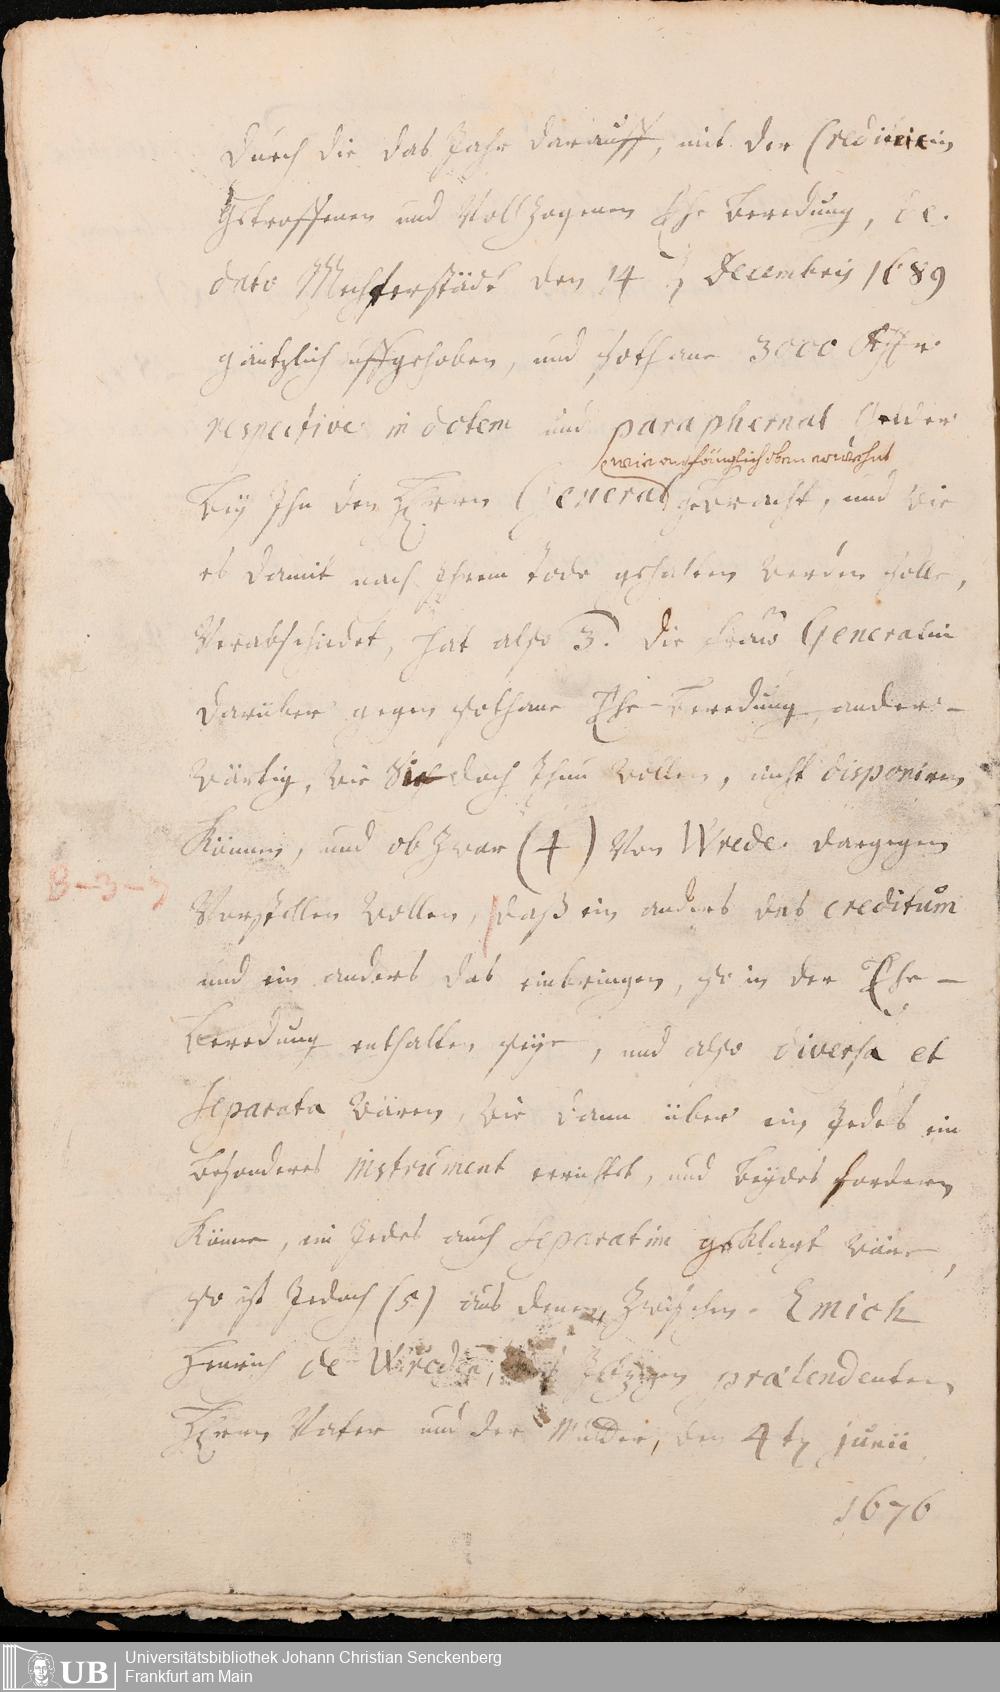 durch die das Jahr darauff, mit der Creditricin
Getroffenen und Vollzogenen Ehe Beredung, de
dato Mechterstädt den 14 Decembris 1689
gäntzlich uffgehoben, und sothane 3000 Rthlr
respective in dotem und paraphernal Gelder
wie anfänglich oben erwehnt
bey Ihn den Herrn General gebracht, und wie
es damit nach Ihrem Tode gehalten werden solle,
Verabschiedet, hat also 3. die Fraw Generalin
darüber gegen sothane Ehe-Beredung ander-
wärtig, wie Sie doch thun wollen, nicht disponiren
können, und ob zwar (4) Von Wrede dargegen
B-3-7
Vorstellen wollen, daß ein anders das creditum
und ein anders das einbringen, so in der Ehe-
Beredung enthalten seye, und also diversa et
separata wären, wie dann über ein Jedes ein
besonderes instrument errichtet, und beydes fordern
könne, ein Jedes auch separatim geklagt wäre,
so ist Jedoch (5) aus denen zwischen Emich
Henrich de Wreden, Jetzigen prætendenten
Herrn Vater und der Mutter, den 4 junii
1676
Universitätsbibliothek Johann Christian Senckenberg
UB Frankfurt am Main